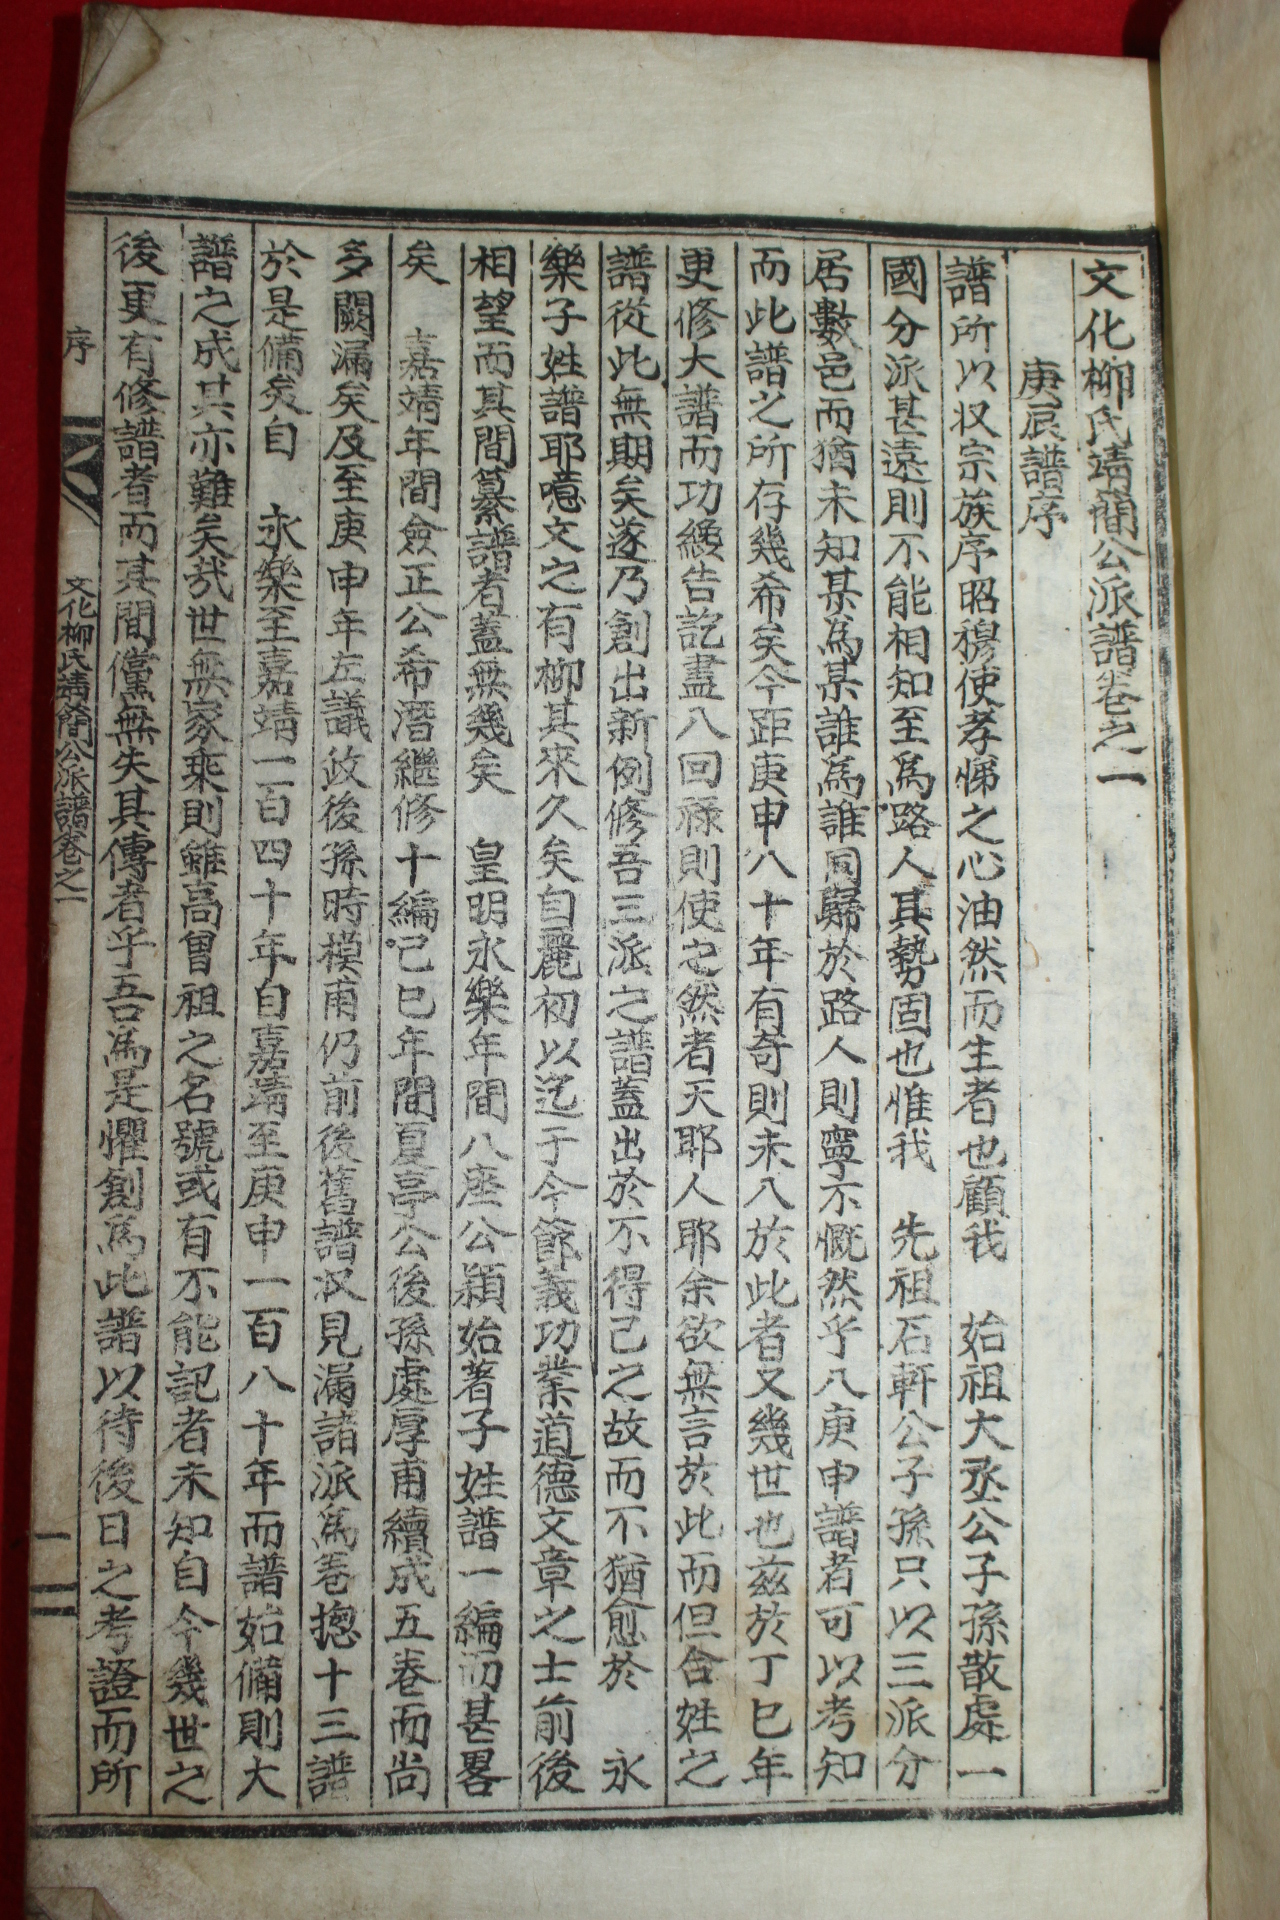 文化柳氏靖簡公派譜卷之一
庚辰譜序
譜所以收宗族序昭穆使孝悌之心油然而生者也顧我 始祖大丞公子孫散處一
國分派甚遠則不能相知至爲路人其勢固也惟我 先祖石軒公子孫只以三派分
居數邑而猶未知某爲某誰爲誰同歸於路人則寧不慨然乎入庚申譜者可以考知
而此譜之所存幾希矣今距庚申八十年有奇則未入於此者又幾世也玆於丁巳年
更修大譜而功纔告訖盡入回祿則使之然者天耶人耶余欲無言於此而但合姓之
譜從此無期矣遂乃創出新例修吾三派之譜蓋出於不得已之故而不猶愈於 永
樂子姓譜耶噫文之有柳其來久矣自麗初以迄于今節義功業道德文章之士前後
相望而其間纂譜者蓋無幾矣 皇明永樂年間八座公潁始著子姓譜一編而甚畧
矣 嘉靖年間僉正公希潛繼修十編己巳年間夏亭公後孫處厚甫續成五卷而尚
多闕漏矣及至庚申年左議政後孫時模甫仍前後舊譜收見漏諸派爲卷摠十三譜
於是備矣自 永樂至嘉靖一百四十年自嘉靖至庚申一百八十年而譜始備則大
譜之成其亦難矣哉世無家乘則雖高曾祖之名號或有不能記者未知自今幾世之
後更有修譜者而其間儻無失其傳者乎吾爲是懼創爲此譜以待後日之考證而所
序 文化柳氏靖簡公派譜卷之一 一